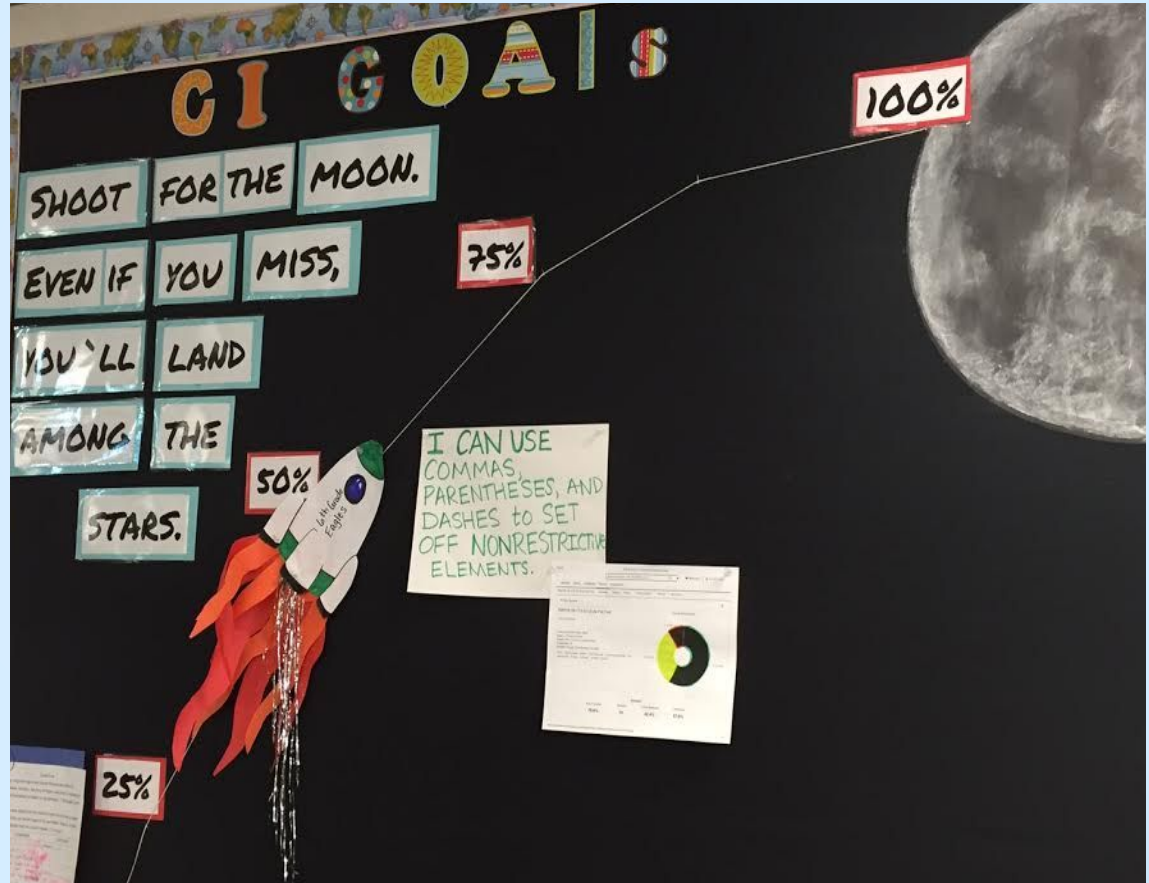 CI GOALS
SHOOT FOR THE MOON.
EVEN IF YOU MISS,
YOU'LL LAND
AMONG THE
STARS.
100%
75%
50%
25%
6th Grade
Eagles
I CAN USE
COMMAS,
PARENTHESES, AND
DASHES to SET
OFF NONRESTRICTIVE
ELEMENTS.